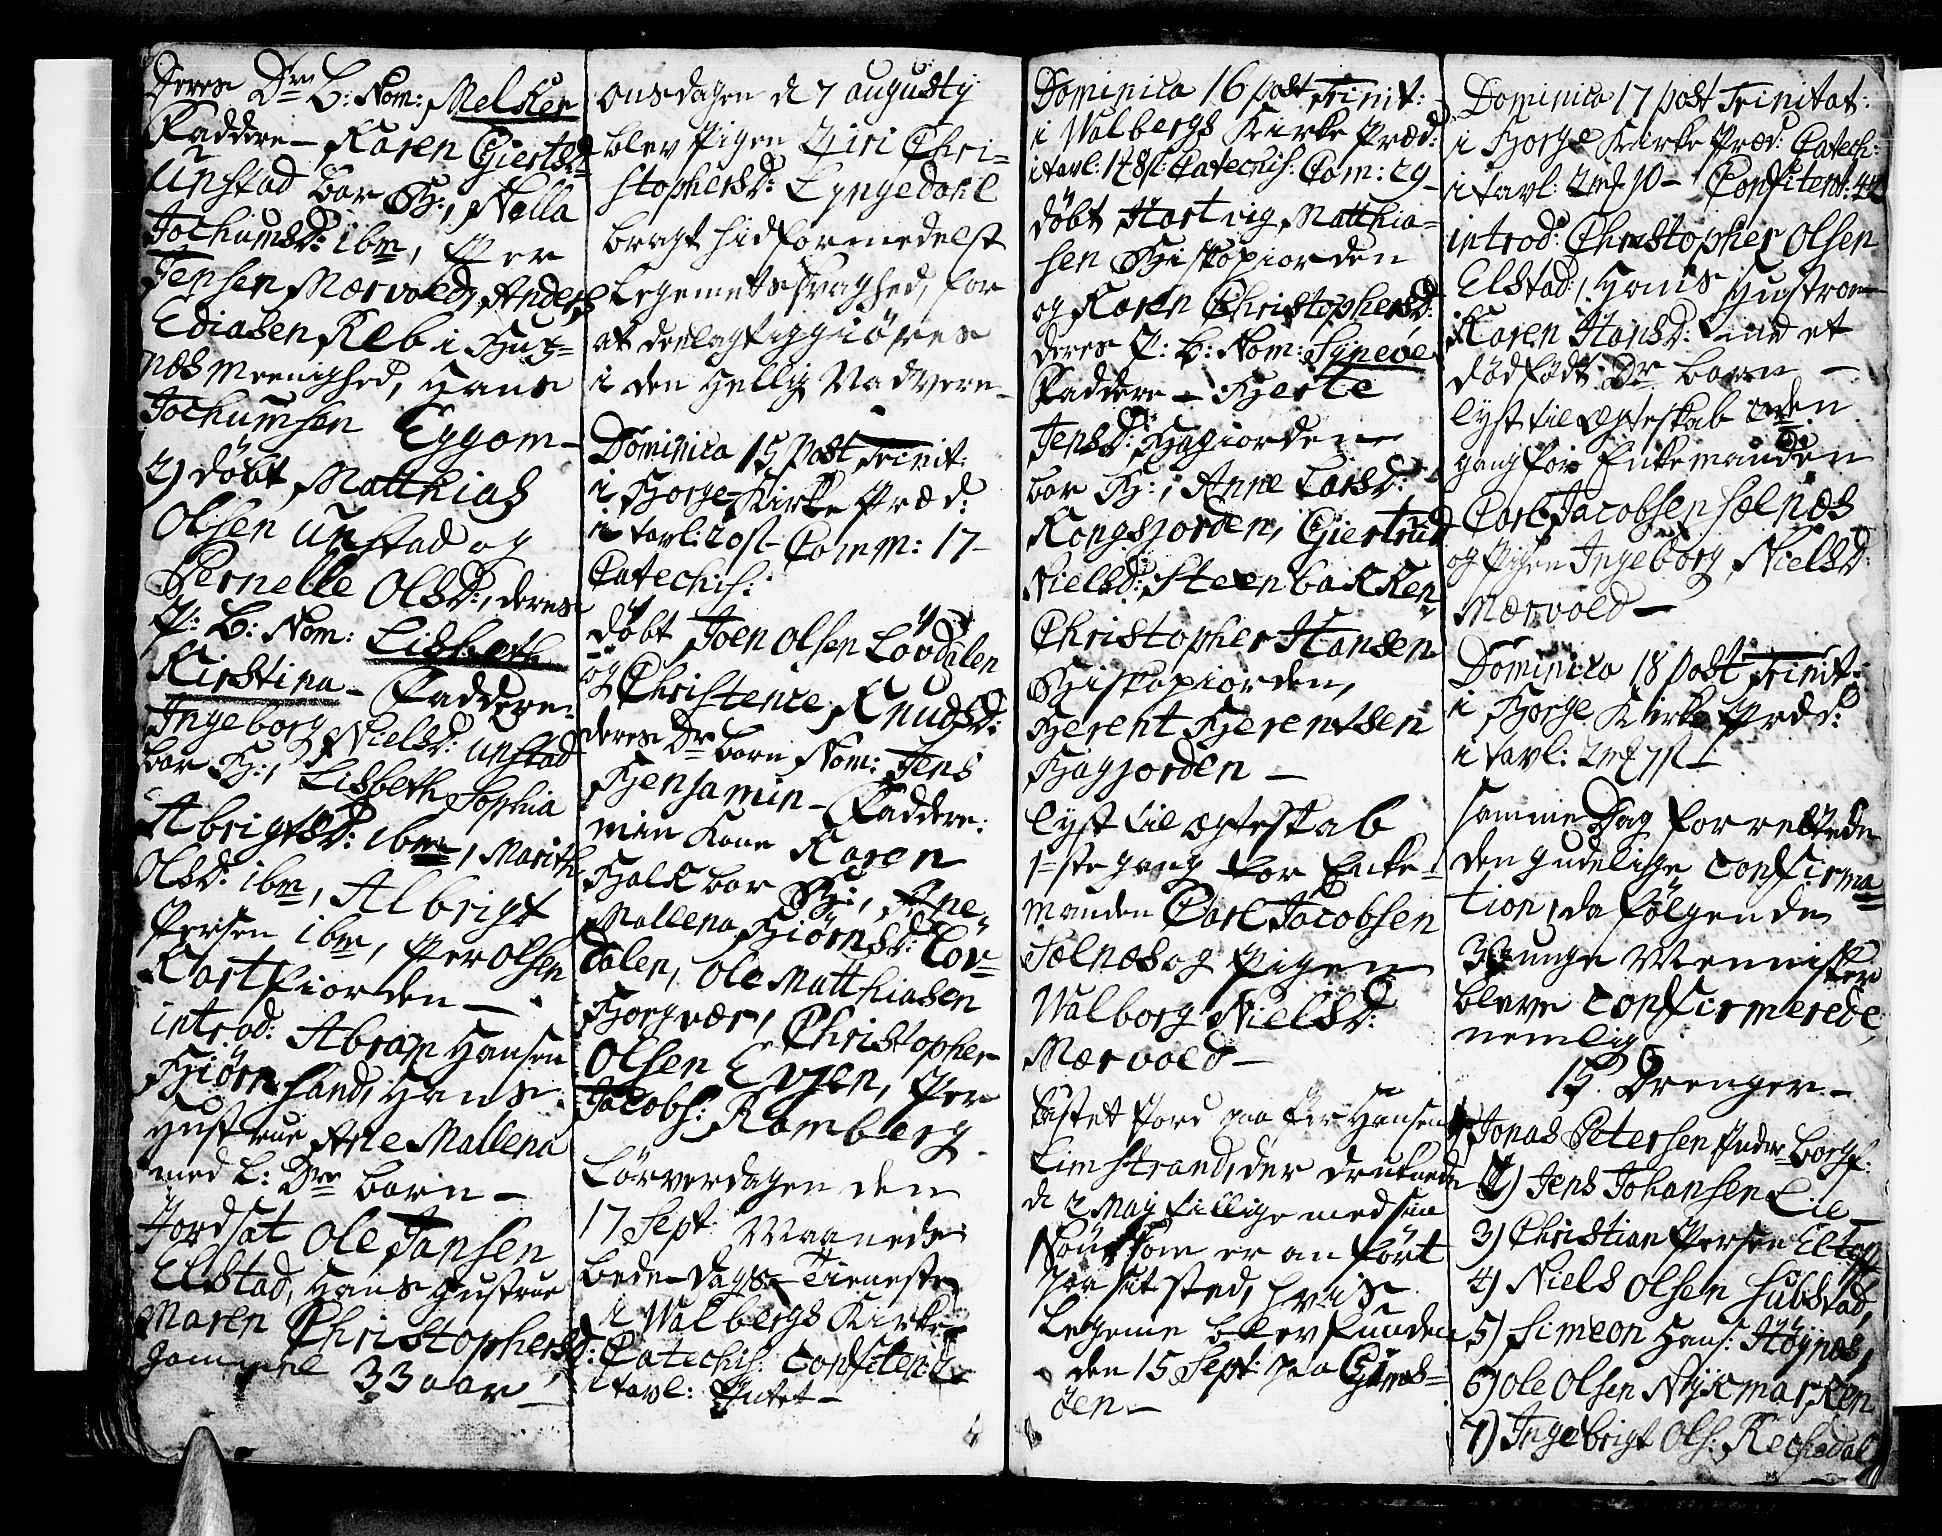 Deres Dr. B: Nom: Melker
Faddere – Karen Giertsd:
Unstad bar B:, Nella
Jochumsd: ibm, Per
Jensen Mærvold, Anders
Ediasen Reb i Bux-
næs Meenighed, Hans
Jochumsen Eggom –
2) døbt Matthias
Olsen Unstad og
Pernelle Olsd:, deres
P: B: Nom: Lisbeth
Kirstina – Faddere:
Ingeborg Nielsd: Unstad
bar B:, Lisbeth Sophia
Abrigtsd: ibm, Marith
Olsd: ibm, Albrigt
Persen ibm, Per Olsen
Kartfiorden –
introd: Abram Hansen
Biørnsand, Hans
Hustrue Ane Mallena
med l: Dr. barn –
Jordsat Ole Jansen
Elstad, Hans Hustrue
Maren Christophersd:
gammel 33 aar –
Onsdagen d 7 Augusty
blev Pigen Siri Chri-
stophersd: Lyngedahl
bragt hid formedelst
Legemets svaghed, for
at deelagtiggiøres
i den Hellig Nadvere –
Dominica 15 post Trinit:
i Borge Kirke Præd:
i tavl: 20 ſ – Comm: 17 –
Catechis:
døbt Joen Olsen Løvdalen
og Christence Knudsd:
deres Dr barn Nom: Jens
Benjamin – Faddere:
min Kone Karen
Balk bar B:, Ane
Mallena Biørnsd: Løv-
dalen, Ole Matthiasen
Borgvær, Christopher
Olsen Evjen, Per
Jacobs: Ramberg –
Løverdagen den
17 Sept: Maaneds
Bede-Dags-Tieneste
i Walbergs Kirke
Catechis: Confitent:
i tavl: Intet –
Dominica 16 post Trinit:
i Walbergs Kirke Præd:
i tavl: 1 48 ſ: Catechis: Com: 29 –
døbt Hartvig Matthia-
sen Biskopiorden
og Karen Christophersd:
deres P: B: Nom: Syneve
Faddere – Berte
Jensd: Hagiordene
bar B:, Anne Larsd:
Kongsjorden, Giertrud
Nielsd: Steenbakken,
Christopher Hansen
Biskopiorden,
Berent Berentsen
Hagjorden –
lyst til Ægteskab
1ste gang for Enke-
manden Carl Jacobsen
Sølnæs og Pigen
Walborg Nielsd:
Mærvold –
Kastet Jord paa Per Hansen
Limstrand, der druknede
d 2 May tillige med sin
som er anført
paa sit sted, hvis
Legeme blev funden
den 15 Sept: paa Gims-
øen –
Dominica 17 post Trinitat:
i Borge Kirke Præd: Catech:
i tavl: 2 mk 10 – Confitent: 42
introd: Christopher Olsen
Elstad, Hans Hustroe
Karen Hansd: med et
dødfødt Dr barn –
lyst til Ægteskab anden
gang for Enkemanden
Carl Jacobsen Sølnæs
og Pigen Ingeborg Nielsd:
Mærvold –
Dominica 18 post Trinit:
i Borge Kirke Præd:
i tavl: 2 mk 7 ſ –
samme Dag forrettede
den gudelige Confirma-
tion, da følgende
unge Mennisker
bleve Confirmerede,
nemlig
15 Drenger –
1) Jonas Petersen Borgf:
2) Jens Johansen Lie
3) Christian Persen Eltoft
4) Niels Olsen Sübstad,
5) Simeon Hans: Høynæs,
6) Ole Olsen Nykmarken
7) Ingebrigt Ols: Rechedal